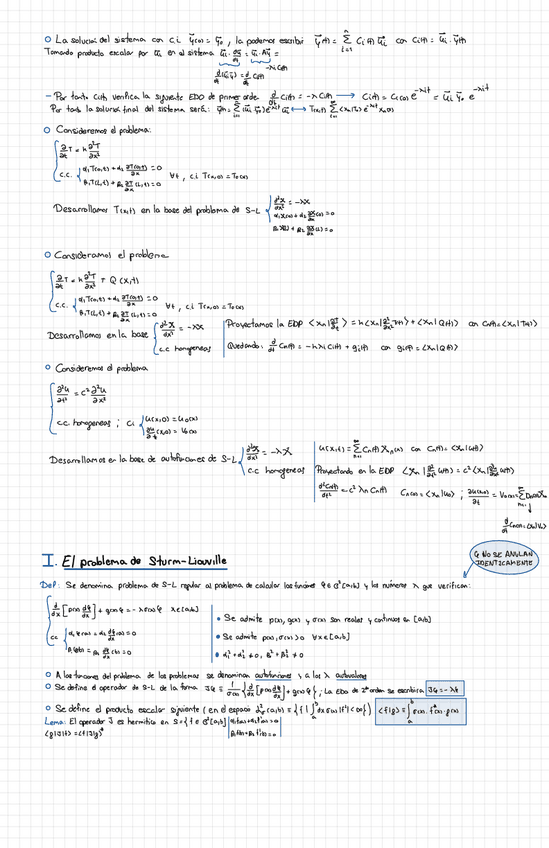 O La solución del sistema con c.i. ȳ(0) = ȳ₀, la podemos escribir ȳ(t) = Σᵢ₌₁ⁿ Cᵢ(t) ūᵢ con Cᵢ(t) = ūᵢ · ȳ(t)
Tomando producto escalar por ūᵢ en el sistema ūᵢ · dȳ/dt = ūᵢ · Aȳ =
d/dt(ūᵢȳ) = d/dt Cᵢ(t) -λᵢCᵢ(t)
- Por tanto Cᵢ(t) verifica la siguiente EDO de primer orden d/dt Cᵢ(t) = -λ Cᵢ(t) → Cᵢ(t) = Cᵢ(0) e^-λit = ūᵢ ȳ₀ e^-λit
Por tanto la solución final del sistema será:
O Consideremos el problema:
∂T/∂t = k ∂²T/∂x²
c.c. α₁T(0,t) + α₂ ∂T(0,t)/∂x = 0
β₁T(L,t) + β₂ ∂T(L,t)/∂x = 0 ∀t, c.i. T(x,0) = T₀(x)
Desarrollamos T(x,t) en la base del problema de S-L d²X/dx² = -λX
α₁X(0) + α₂ dX/dx(0) = 0
β₁X(L) + β₂ dX/dx(L) = 0
O Consideramos el problema
∂T/∂t = k ∂²T/∂x² + Q(x,t)
c.c. α₁T(0,t) + α₂ ∂T(0,t)/∂x = 0
β₁T(L,t) + β₂ ∂T(L,t)/∂x = 0 ∀t, c.i. T(x,0) = T₀(x)
Desarrollamos en la base d²X/dx² = -λX
c.c. homogeneas
Proyectamos la EDP <Xₙ|∂T/∂t> = k<Xₙ|∂²/∂x² T(t)> + <Xₙ|Q(t)> con Cₙ(t) = <Xₙ|T(t)>
Quedando: d/dt Cₙ(t) = -kλᵢCᵢ(t) + gᵢ(t) con gᵢ(t) = <Xₙ|Q(t)>
O Consideremos el problema
∂²u/∂t² = c² ∂²u/∂x²
c.c. homogeneas ; ci u(x,0) = u₀(x)
∂u/∂t (x,0) = V₀(x)
Desarrollamos en la base de autofunciones de S-L d²X/dx² = -λX
c.c homogeneas
u(x,t) = Σₙ₌₁^∞ Cₙ(t) Xₙ(x) con Cₙ(t) = <Xₙ|u(t)>
Proyectando en la EDP <Xₙ|∂²/∂t² u(t)> = c² <Xₙ|∂²/∂x² u(t)>
d²Cₙ(t)/dt² = c² λₙ Cₙ(t) Cₙ(0) = <Xₙ|u₀> ;
I. El problema de Sturm-Liouville
φ NO SE ANULAN IDENTICAMENTE
Def: Se denomina problema de S-L regular al problema de calcular las funciones φ ∈ C²[a,b] y los números λ que verifican:
d/dx [p(x) dφ/dx] + q(x) φ = -λσ(x)φ x∈[a,b]
• Se admite p(x), q(x) y σ(x) son reales y continuos en [a,b]
• Se admite p(x), σ(x) > 0 ∀x∈[a,b]
O A las funciones del problema de los problemas se denominan autofunciones y a los λ autovalores
O Se define el operador de S-L de la forma Jφ = 1/σ(x) {d/dx [p(x) dφ/dx] + q(x)φ}, La EDO de 2º orden se escribirá Jφ = -λφ
O Se define el producto escalar siguiente (en el espacio
<f|g> = ∫ₐᵇ σ(x) · f*(x) · g(x)
Lema: El operador J es hermitico en S = {f ∈ C²[a,b]
<g|Jf> = <f|Jg>*